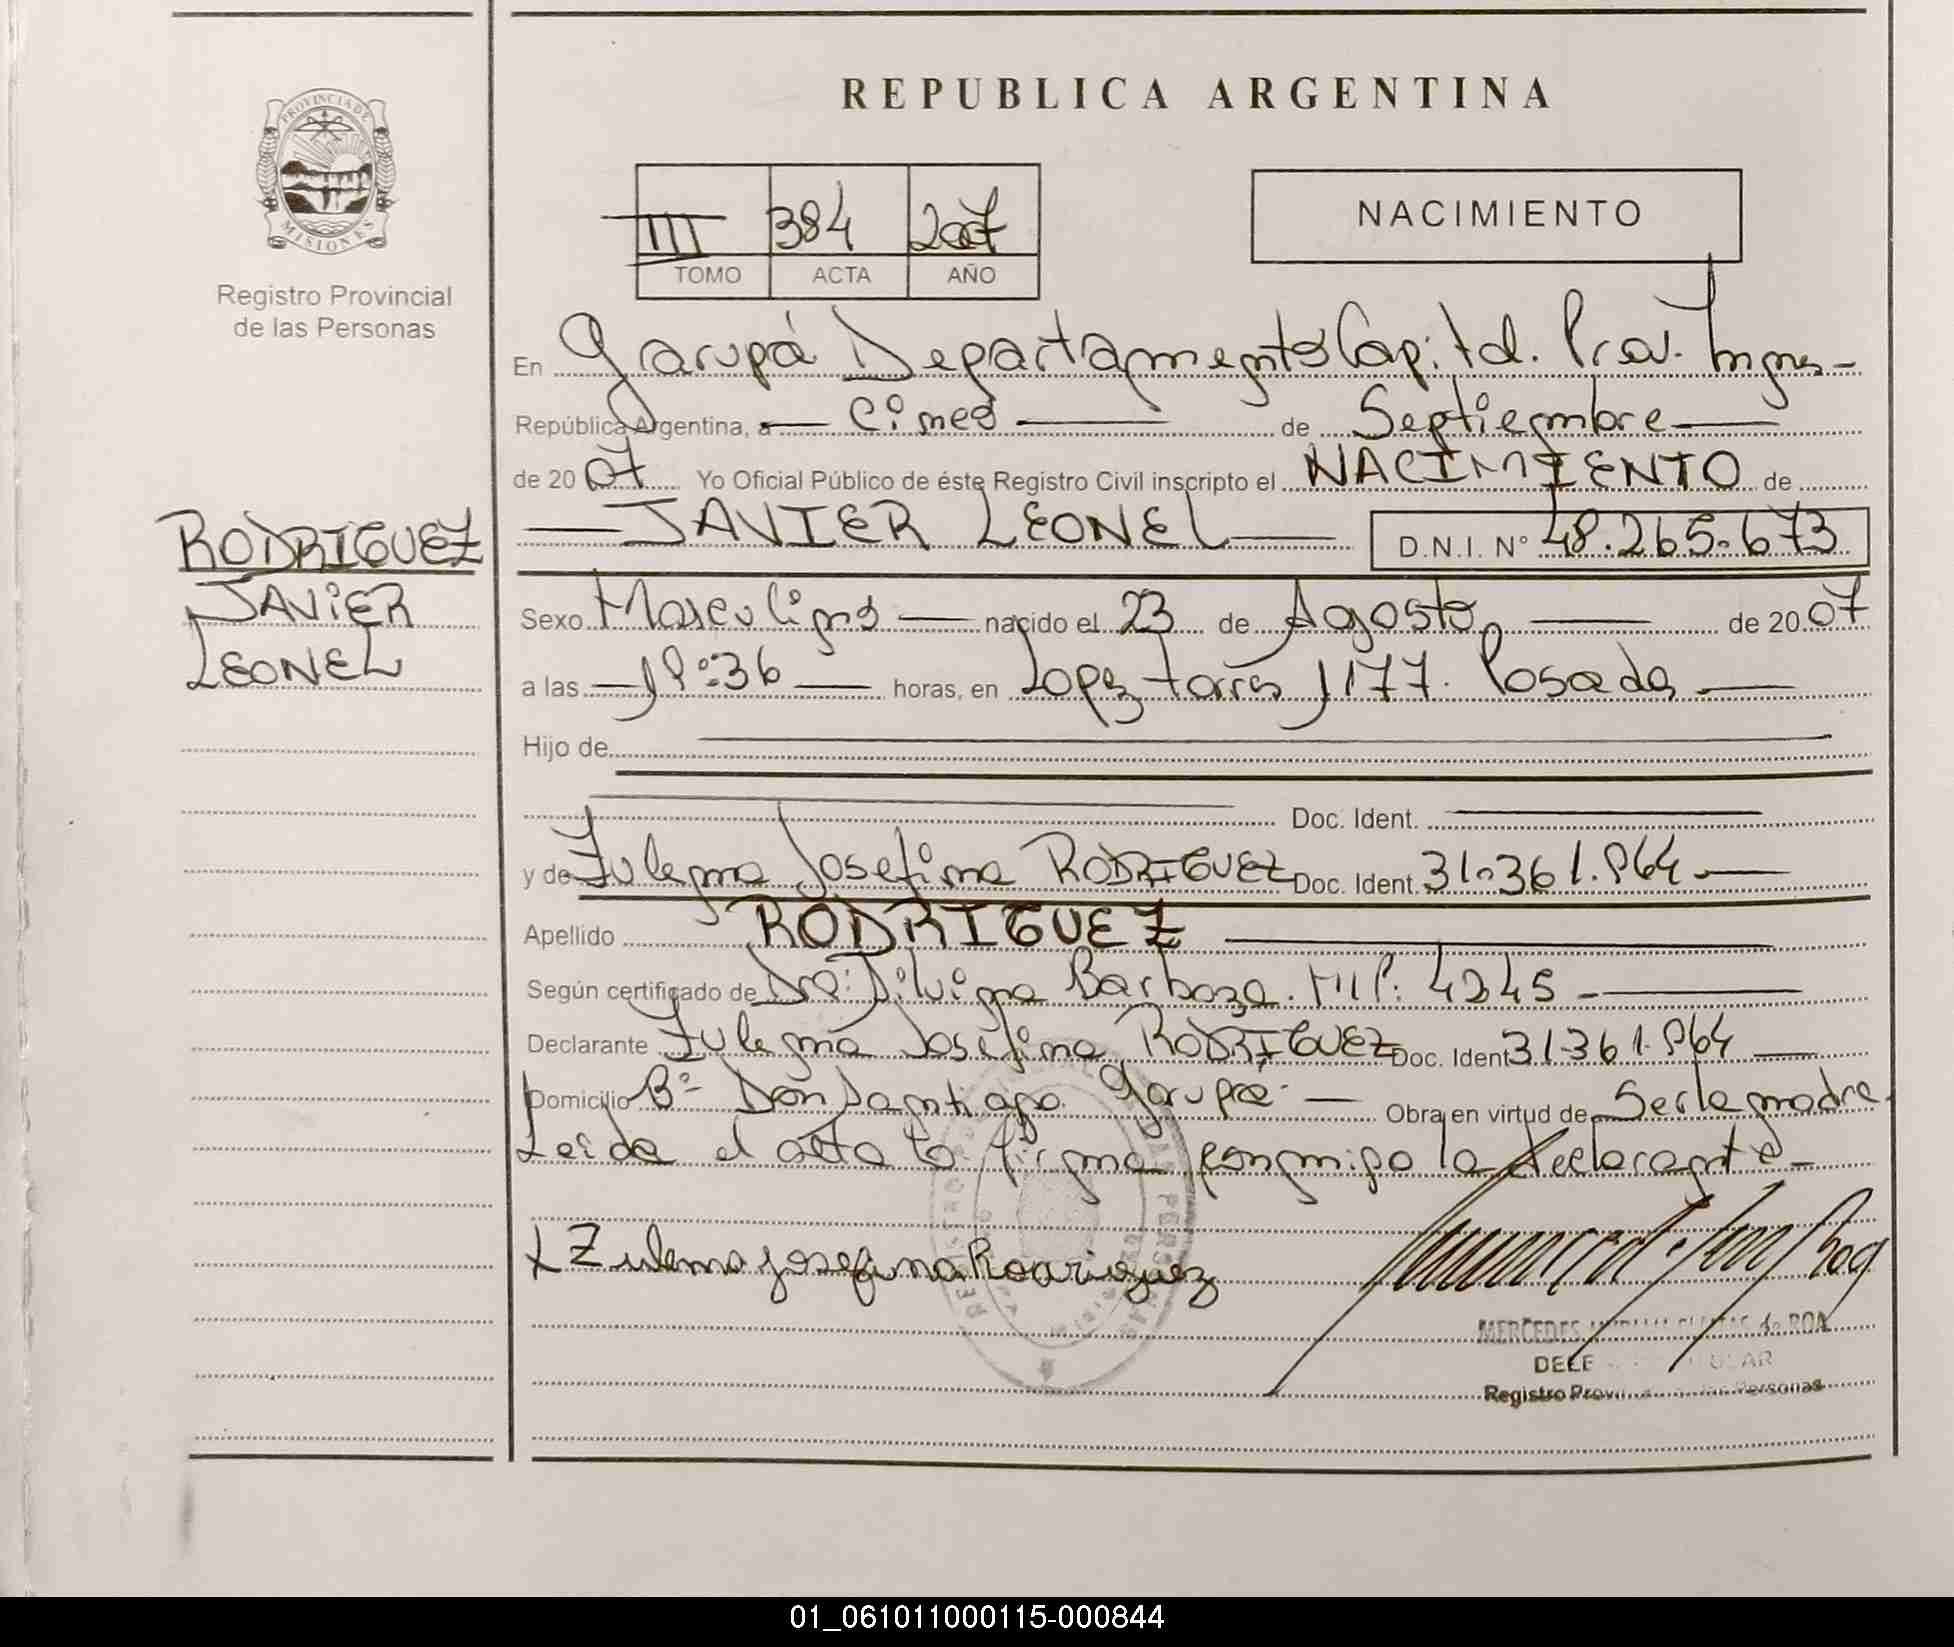 REPUBLICA ARGENTINA
PROVINCIA DE
MISIONES
Registro Provincial
de las Personas
NACIMIENTO
III 384 2007
TOMO ACTA AÑO
En Garupá Departamento Capital. Prov. Mnes
República Argentina, a Cinco de Septiembre
de 2007 Yo Oficial Público de éste Registro Civil inscripto el NACIMIENTO de
JAVIER LEONEL D.N.I. Nº 48.265.673
RODRIGUEZ
JAVIER
LEONEL
Sexo Masculino nacido el 23 de Agosto de 2007
a las horas, en Lopez Torres 1177. Posadas
Hijo de
Doc. Ident.
y de Zulema Josefina RODRIGUEZ Doc. Ident. 31.361.964
Apellido RODRIGUEZ
Según certificado de Dra: Silvina Barboza. M.P: 4245
Declarante Zulema Josefina RODRIGUEZ Doc. Ident 31.361.964
Domicilio Bº Don Santiago. Garupá Obra en virtud de Ser la madre.
Leída el acta la firma conmigo la declarante
x Zulema Josefina Rodriguez
MERCEDES de ROA
Registro Personas
01_061011000115-000844